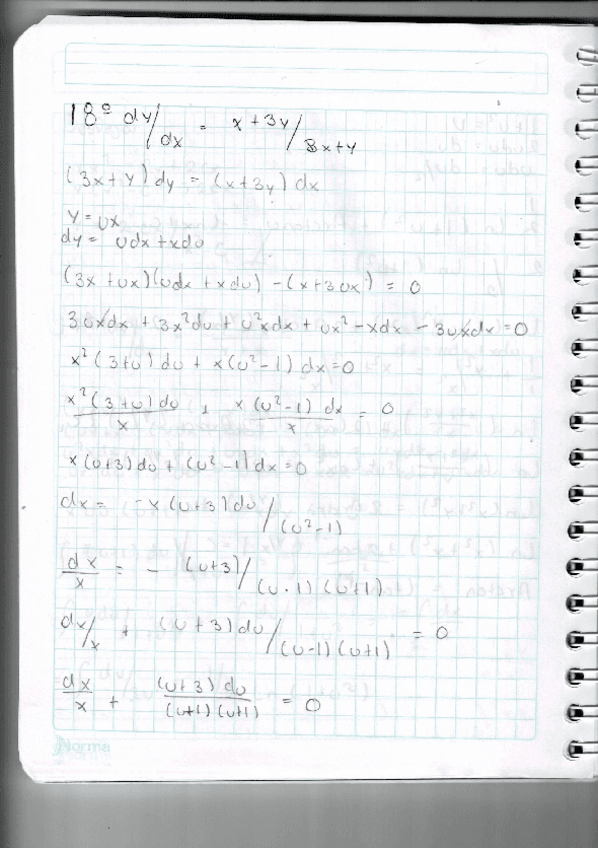 18° dy/dx = x+3y/3x+y
(3x+y) dy = (x+3y) dx
y = ux
dy = udx + xdu
(3x+ux)(udx + xdu) - (x+3ux) = 0
3uxdx + 3x²du + u²xdx + ux² - xdx - 3uxdx = 0
x² (3+u) du + x(u²-1) dx = 0
x² (3+u) du / x + x (u²-1) dx / x = 0
x(u+3) du + (u²-1) dx = 0
dx = -x (u+3) du / (u²-1)
dx/x = - (u+3) / (u-1) (u+1)
dx/x + (u+3) du / (u-1) (u+1) = 0
dx/x + (u+3) du / (u+1) (u+1) = 0
Norma